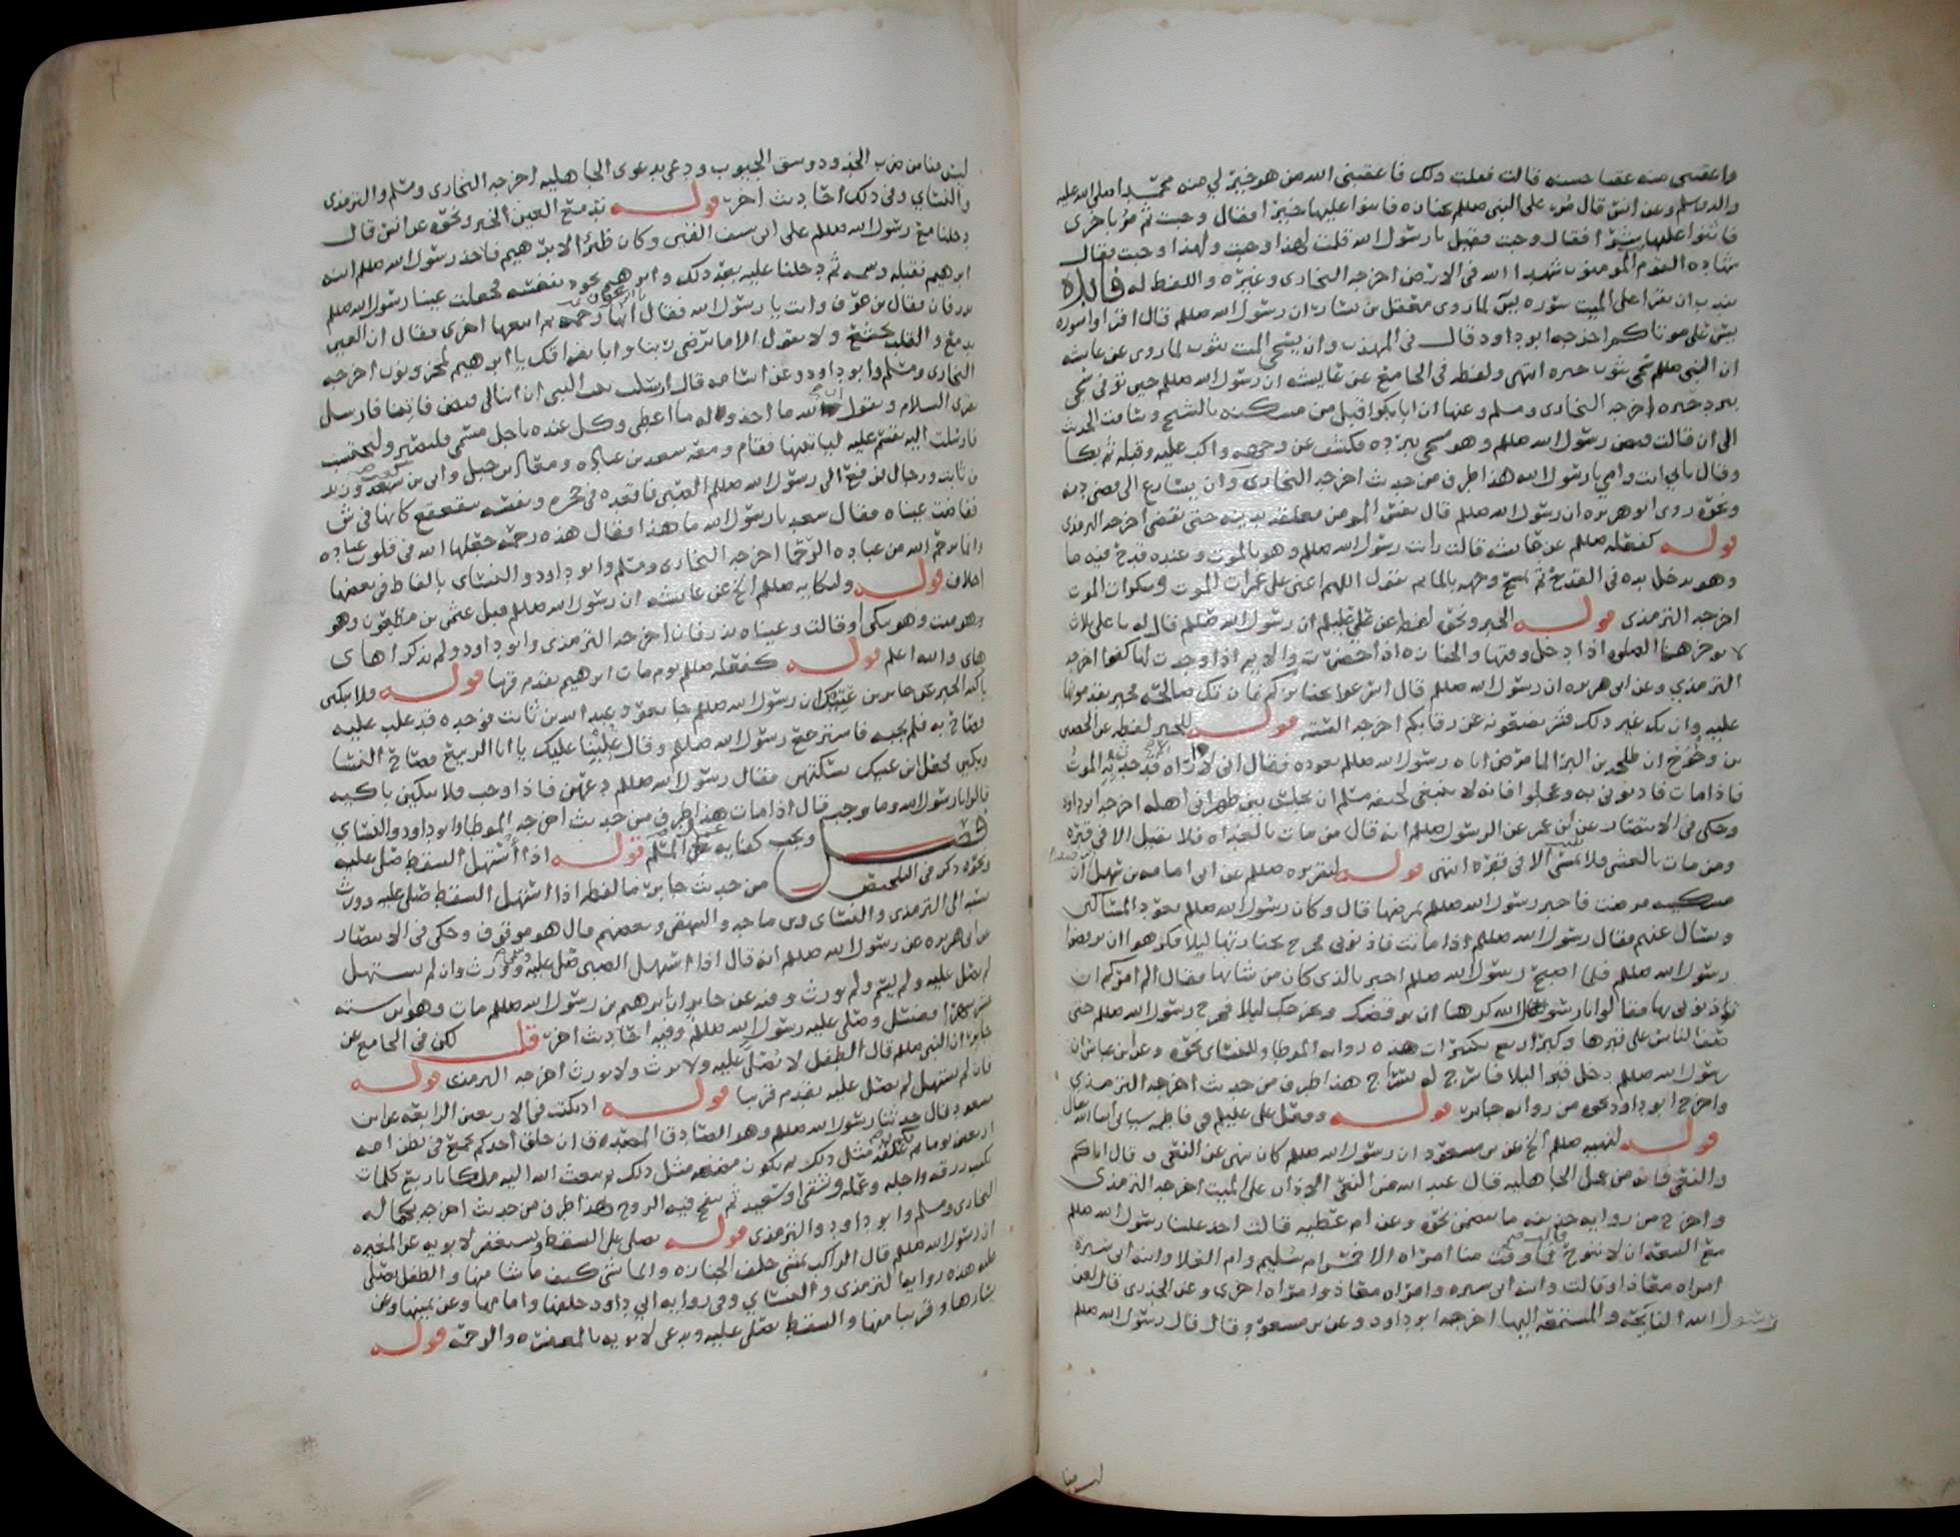 واعقبني منه عقبا حسنه قالت فعلت ذلك فاعقبني الله من هو خير لي منه محمدا صلى الله عليه
واله وسلم وعن انس قال مر على النبي صللم بجنازه فاثنوا عليها خيرا فقال وجبت ثم مر باخرى
فاثنوا عليها شرا فقال وجبت فقيل يا رسول الله قلت لهذا وجبت ولهذا وجبت فقال
شهاده القوم المومنون شهدا الله في الارض اخرجه البخاري وغيره واللفظ له فايده
يندب ان يقرا على الميت سوره يس لما روى معقل بن يسار ان رسول الله صللم قال اقراوا سوره
يس على موتاكم اخرجه ابو داود قال في المهذب وان يسجى الميت بثوب لما روي عن عايشه
ان النبي صللم سجي بثوب حبره انتهى ولفظه في الجامع عن عايشه ان رسول الله صللم حين توفي سجي
ببرد حبره اخرجه البخاري ومسلم وعنها ان ابا بكر اقبل من مسكنه بالسنح وساقت الحديث
الى ان قالت فيمم رسول الله صللم وهو مسجى ببرده فكشف عن وجهه واكب عليه وقبله ثم بكا
وقال بابي انت وامي يا رسول الله هذا طرف من حديث اخرجه البخاري وان يسارع الى قضى دينه
ونحوه روى ابو هريره ان رسول الله صللم قال نفس المومن معلقه بدينه حتى يقضى اخرجه الترمذي
قوله كفعله صللم عن عايشه قالت رايت رسول الله صللم وهو بالموت وعنده قدح فيه ما
وهو يدخل يده في القدح ثم يمسح وجهه بالما ثم يقول اللهم اعني على غمرات الموت وسكرات الموت
اخرجه الترمذي قوله الخبر ونحوه لفظه عن علي عليلم ان رسول الله صللم قال له يا علي ثلاث
لا توخرها الصلوه اذا دخل وقتها والجنازه اذا حضرت والايم اذا وجدت لها كفوا اخرجه
الترمذي وعن ابي هريره ان رسول الله صللم قال اسرعوا بجنائزكم فان تك صالحه فخير تقدمونها
عليه وان تك غير ذلك فشر تضعونه عن رقابكم اخرجه السته قوله للخبر لفظه عن الحصين
بن وحوح ان طلحه بن البرا لما مرض اتاه رسول الله صللم يعوده فقال اني لا اراه قد حدث به الموت
فاذا مات فاذنوني به وعجلوا فانه لا ينبغي لجيفه مسلم ان تحبس بين ظهراني اهله اخرجه ابو داود
وحكى في الانتصار عن ابن عمر عن الرسول صللم انه قال من مات بالغداه فلا يقيل الا في قبره
ومن مات بالعشي فلا يبيتن الا في قبره انتهى قوله لتقريره صللم عن ابي امامه بن سهل ان
مسكينه مرضت فاخبر رسول الله صللم بمرضها قال وكان رسول الله صللم يعود المساكين
ويسال عنهم فقال رسول الله صللم اذا ماتت فاذنوني فخرج بجنازتها ليلا فكرهوا ان يوقظوا
رسول الله صللم فلما اصبح رسول الله صللم اخبر بالذي كان من شانها فقال الم امركم ان
تؤذنوني بها فقالوا يا رسول الله كرهنا ان نوقضك ونخرجك ليلا فخرج رسول الله صللم حتى
صف الناس على قبرها وكبر اربع تكبيرات هذه روايه الموطا وللنساي نحوه وعن ابن عباس ان
رسول الله صللم دخل قبرا ليلا فاسرج له سراج هذا طرف من حديث اخرجه الترمذي
واخرج ابو داود نحوه من روايه جابر قوله وفعل علي عليلم في فاطمه سياتي ان شا الله تعالى
قوله لنهيه صللم الخ عن بن مسعود ان رسول الله صللم كان ينهى عن النعي وقال اياكم
والنعي فانه من عمل الجاهليه قال عبد الله من النعي الاذان على الميت اخرجه الترمذي
واخرج من روايه حذيفه ما يتضمن نحوه وعن ام عطيه قالت اخذ علينا رسول الله صللم
مع البيعه ان لا ننوح قالت فما وفت منا امراه الا خمس ام سليم وام العلا وابنه ابي سبره
امراه معاذ او قالت وابنه ابي سبره وامراه معاذ وامراه اخرى وعن الخدري قال لعن
رسول الله النايحه والمستمعه اليها اخرجه ابو داود وعن بن مسعود قال قال رسول الله صللم
ليس منا
ليس منا من ضرب الخدود وشق الجيوب ودعى بدعوى الجاهليه اخرجه البخاري ومسلم والترمذي
والنساي وفي ذلك احاديث اخر قوله تدمع العين الخبر ونحوه عن انس قال
دخلنا مع رسول الله صللم على ابي سيف القين وكان ظئرا لابرهيم فاخذ رسول الله صللم ابنه
ابرهيم فقبله وشمه ثم دخلنا عليه بعد ذلك وابرهيم يجود بنفسه فجعلت عينا رسول الله صللم
تذرفان فقال بن عوف وانت يا رسول الله فقال يا ابن عوف انها رحمه ثم اتبعها اخرى فقال ان العين
تدمع والقلب يخشع ولا نقول الا ما يرضي ربنا وانا بفراقك يا ابرهيم لمحزونون اخرجه
البخاري ومسلم وابو داود وعن اسامه قال ارسلت بنت النبي ان ابنا لي قبض فاتنا فارسل
يقرئ السلام ويقول ان لله ما اخذ وله ما اعطى وكل عنده باجل مسمى فلتصبر ولتحتسب
فارسلت اليه تقسم عليه لياتينها فقام ومعه سعد بن عباده ومعاذ بن جبل وابي بن كعب وزيد
بن ثابت ورجال فرفع الى رسول الله صللم الصبي فاقعده في حجره ونفسه تتقعقع كانها في شن
ففاضت عيناه فقال سعد يا رسول الله ما هذا فقال هذه رحمه جعلها الله في قلوب عباده
وانما يرحم الله من عباده الرحما اخرجه البخاري ومسلم وابو داود والنساي بالفاظ في بعضها
اختلاف قوله ولبكايه صللم الخ عن عايشه ان رسول الله صللم قبل عثمن بن مظعون وهو
وهو ميت وهو يبكي او قالت وعيناه تذرفان اخرجه الترمذي وابو داود ولم يذكرا هاى
هاى والله اعلم قوله كفعله صللم يوم مات ابرهيم تقدم قريبا قوله فلا تبكين
باكيه الخبر عن جابر بن عتيك ان رسول الله صللم جا يعود عبد الله بن ثابت فوجده قد غلب عليه
فصاح به فلم يجبه فاسترجع رسول الله صللم وقال غلبنا عليك يا ابا الربيع فصاح النسا
وبكين فجعل ابن عتيك يسكتهن فقال رسول الله صللم دعهن فاذا وجب فلا تبكين باكيه
قالوا يا رسول الله وما وجب قال اذا مات هذا طرف من حديث اخرجه الموطا وابو داود والنساي
فصل ويجب كفايه غسل المسلم قوله اذا استهل السقط صلي عليه
ونحوه ذكره في التلخيص من حديث جابر ما لفظه اذا استهل السقط صلي عليه وورث
نسبه الى الترمذي والنساي وبن ماجه والبيهقي وبعضهم قال هو موقوف وحكى في الانتصار
عن ابي هريره عن رسول الله صللم انه قال اذا استهل الصبي صلي عليه وسمي وورث وان لم يستهل
لم يصل عليه ولم يسم ولم يورث وفيه عن جابر ان ابرهيم بن رسول الله صللم مات وهو ابن سته
عشر شهرا فغسل وصلى عليه رسول الله صللم وفيه احاديث اخر قلت لكن في الجامع عن
جابر ان النبي صللم قال الطفل لا يصلى عليه ولا يرث ولا يورث اخرجه الترمذي قوله
فان لم يستهل لم يصل عليه تقدم قريبا قوله اذ يكتب في الاربعين الرابعه عن ابن
مسعود قال حدثنا رسول الله صللم وهو الصادق المصدق ان خلق احدكم يجمع في بطن امه
اربعين يوما ثم يكون علقه مثل ذلك ثم يكون مضغه مثل ذلك ثم يبعث الله اليه ملكا باربع كلمات
يكتب رزقه واجله وعمله وشقي او سعيد ثم ينفخ فيه الروح هذا طرف من حديث اخرجه بكماله
البخاري ومسلم وابو داود والترمذي قوله يصلى على السقط ويستغفر لابويه عن المغيره
ان رسول الله صللم قال الراكب يمشي خلف الجنازه والماشي كيف ما شا منها والطفل يصلى
عليه هذه روايه الترمذي والنساي وفي روايه ابي داود خلفها وامامها وعن يمينها وعن
يسارها وقريبا منها والسقط يصلى عليه ويدعى لابويه بالمغفره والرحمه قوله